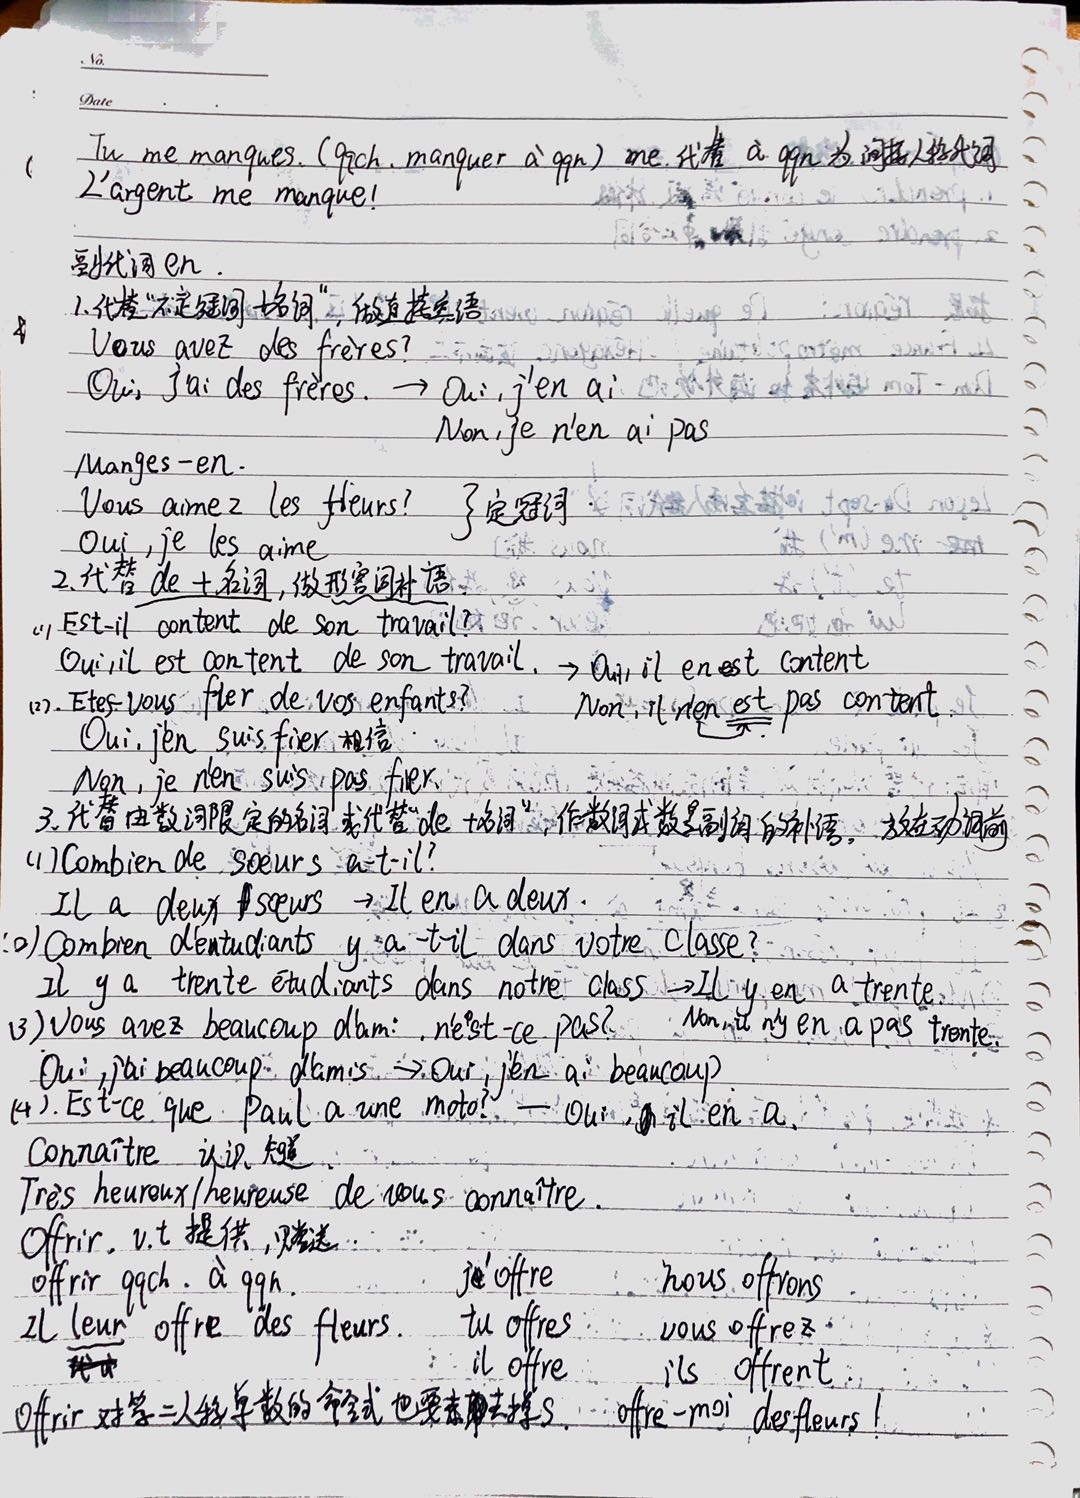 No.
Date
Tu me manques. (qqch. manquer à qqn) me 代替 à qqn 为 间接人称代词
L'argent me manque!
副代词 en.
1. 代替“不定冠词+名词”, 做直接宾语
Vous avez des frères?
Oui, j'ai des frères. → Oui, j'en ai
Non, je n'en ai pas
Manges-en.
Vous aimez les fleurs? } 定冠词
Oui, je les aime
2. 代替 de + 名词, 做形容词补语
(1) Est-il content de son travail?
Oui, il est content de son travail. → Oui, il en est content
(2). Etes-vous fier de vos enfants? Non, il n'en est pas content.
Oui, j'en suis fier 相信
Non, je n'en suis pas fier.
3. 代替由数词限定的名词或代替“de + 名词”, 作数词或数量副词的补语, 放在动词前
(1) Combien de sœurs a-t-il?
Il a deux sœurs → Il en a deux.
(2) Combien d'entudiants y a-t-il dans votre classe?
Il y a trente étudiants dans notre class → Il y en a trente.
(3) Vous avez beaucoup d'ami. n'est-ce pas? Non, il n'y en a pas trente.
Oui, j'ai beaucoup d'amis → Oui, j'en ai beaucoup.
(4). Est-ce que Paul a une moto? — Oui, il en a.
Connaître 认识、知道
Très heuroux/heureuse de vous connaître.
Offrir. v.t 提供, 赠送
offrir qqch. à qqn. j'offre nous offrons
Il leur offre des fleurs. tu offres vous offrez
il offre ils offrent
Offrir 对第二人称单数的命令式也要去掉s. offre-moi des fleurs!